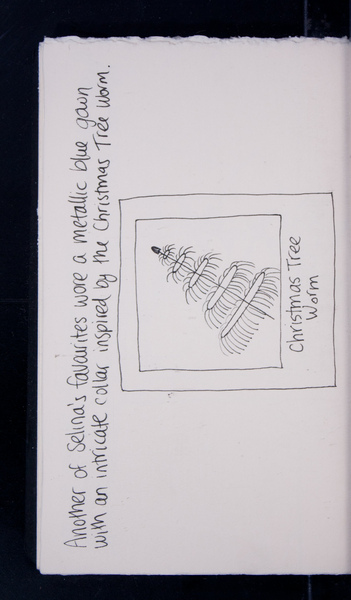 Another of Selina's favourites wore a metallic blue gown
with an intricate collar inspired by the Christmas Tree Worm.
Christmas Tree
Worm